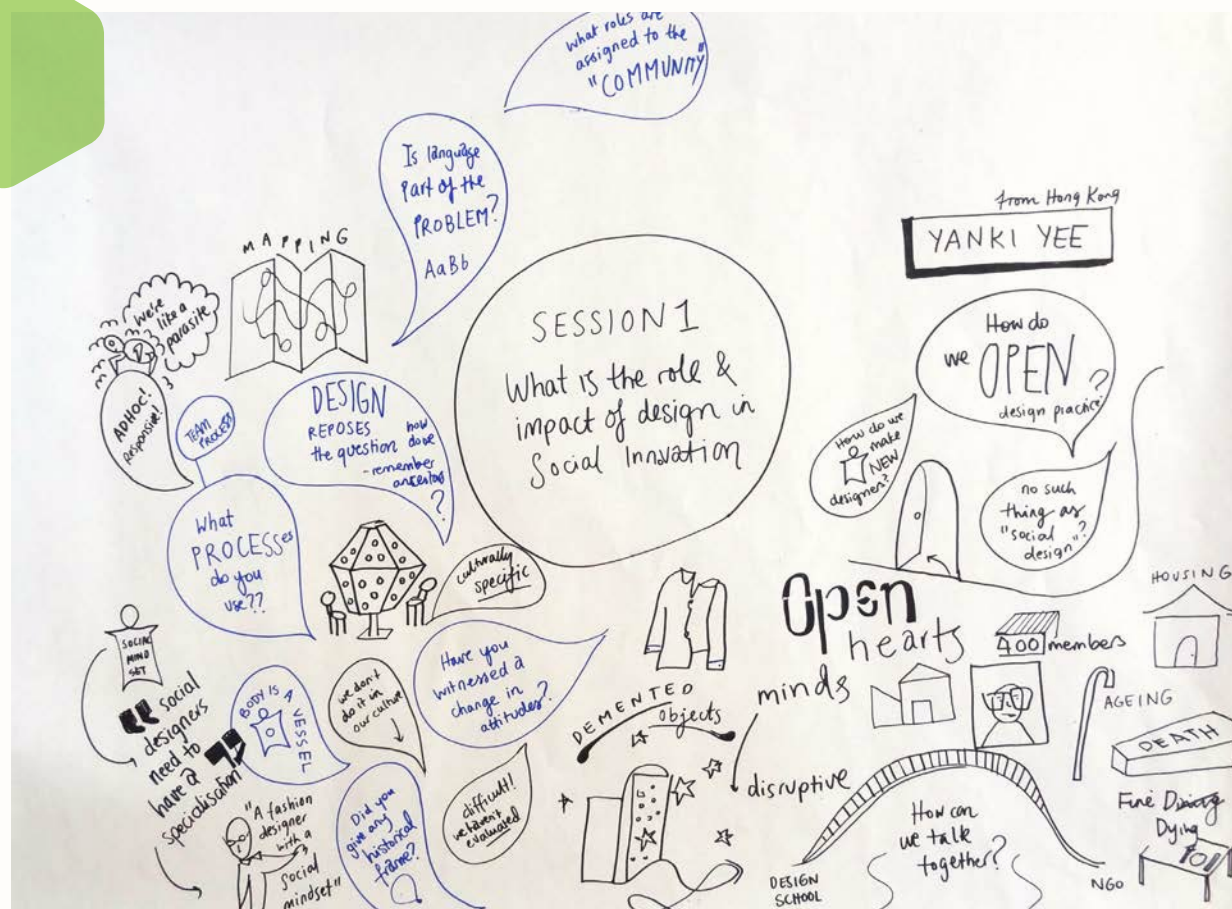 what roles are
assigned to the
"COMMUNITY"
Is language
part of the
PROBLEM?
AaBb
MAPPING
We're
like a
parasite
ADHOC!
Responsive!
TEAM
PROCESS
DESIGN
REPOSES
the question how
do we
- remember
ancestors
?
What
PROCESSes
do you
use??
SESSION 1
What is the role &
impact of design in
Social Innovation
from Hong Kong
YANKI YEE
How do
we OPEN
design practice?
How do we
make
NEW
designers?
no such
thing as
"social
design"?
culturally
specific
SOCIAL
MIND
SET
Social
designers
need to
have a
specialisation
BODY IS A VESSEL
we don't
do it in
our culture
Have you
witnessed a
change in
attitudes?
"A fashion
designer
with a
social
mindset"
Did you
give any
historical
frame?
difficult!
we haven't
evaluated
DEMENTED
objects
Open
hearts
minds
disruptive
400 members
HOUSING
AGEING
DEATH
Fine Dining
Dying
How can
we talk
together?
DESIGN
SCHOOL
NGO